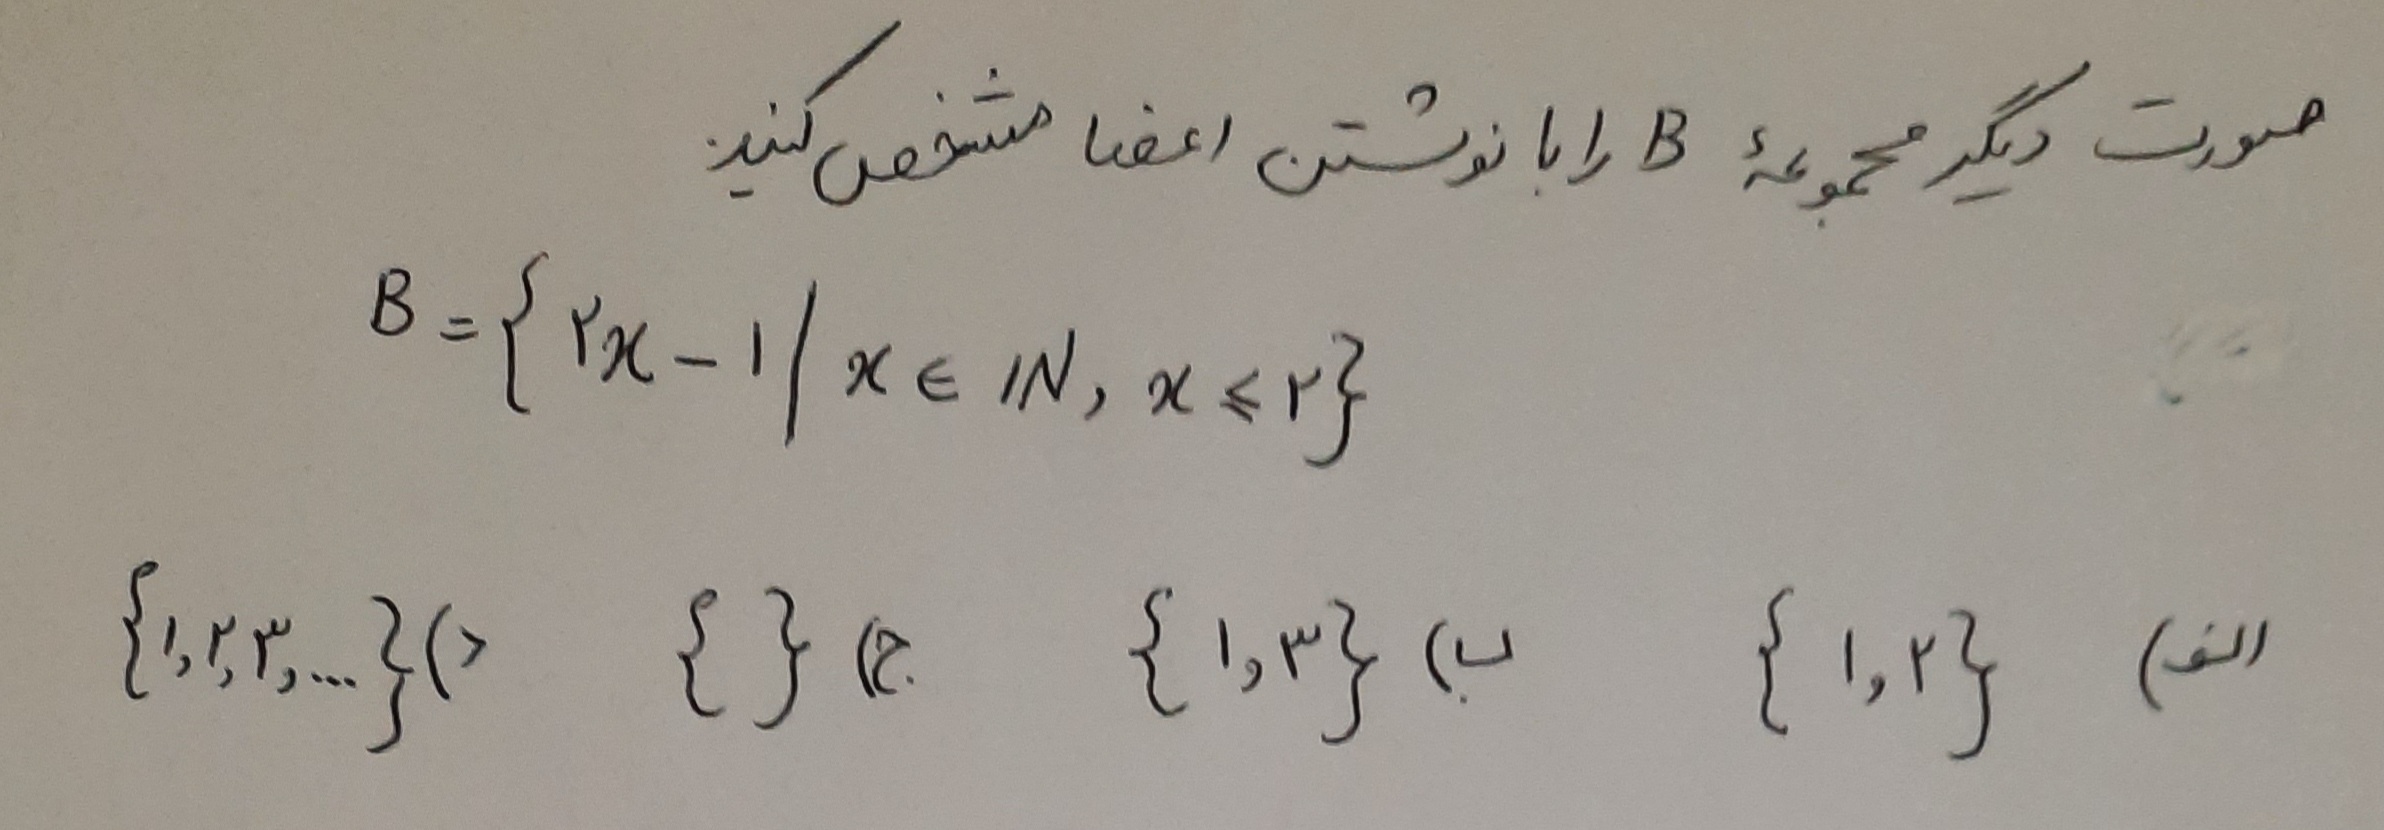 صورت دیگر مجموعهٔ B را با نوشتن اعضا مشخص کنید.
B = {۲x - ۱ / x ∈ ℕ, x ≤ ۲}
الف) {۱,۲} ب) {۱,۳} ج) { } د) {۱,۲,۳,...}